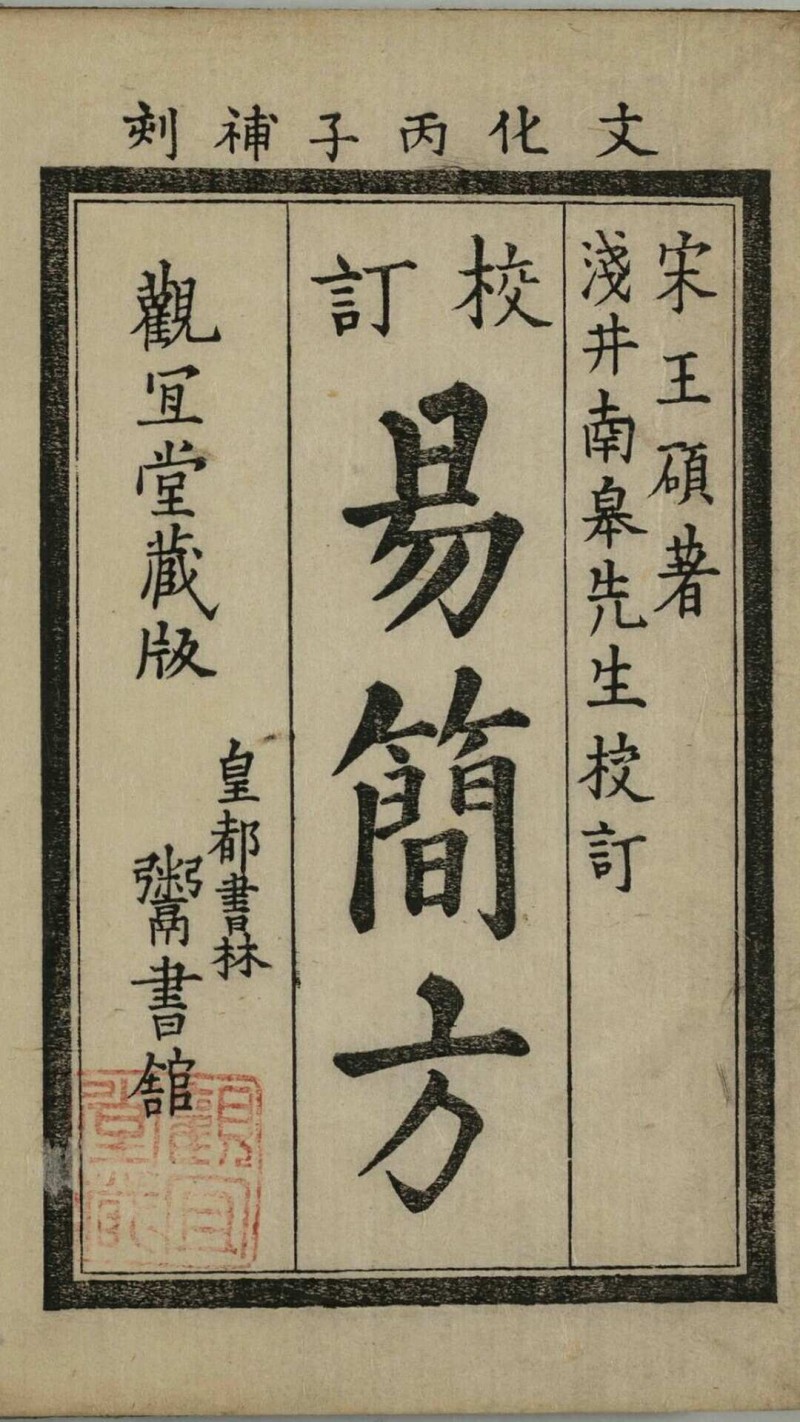 文化丙子補刻
宋王碩著
淺井南皋先生校訂
校訂
易簡方
觀宜堂藏版
皇都書林
鬻書舘
觀宜堂藏